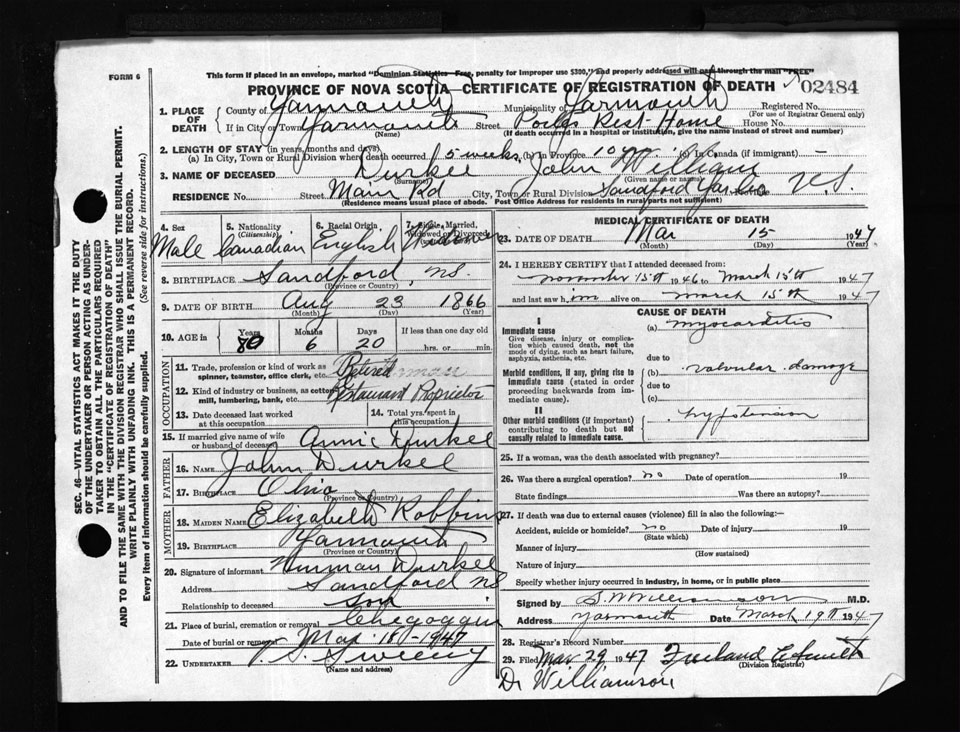 FORM 6
This form if placed in an envelope, marked "Dominion Statistics—Free, penalty for improper use $300," and properly addressed will pass through the mail "FREE"
PROVINCE OF NOVA SCOTIA—CERTIFICATE OF REGISTRATION OF DEATH
02484
1. PLACE OF DEATH
County of Yarmouth Municipality of Yarmouth Registered No.
(For use of Registrar General only)
If in City or Town Yarmouth Street Rest Home House No.
(Name) (If death occurred in a hospital or institution, give the name instead of street and number)
2. LENGTH OF STAY (in years, months and days)
(a) In City, Town or Rural Division where death occurred 5 weeks (b) In Province (c) In Canada (if immigrant) —
3. NAME OF DECEASED Durkee John William
(Surname) (Given name or names)
RESIDENCE No. Street Main Rd City, Town or Rural Division Sandford Yar Co N.S.
(Residence means usual place of abode. Post Office Address for residents in rural parts not sufficient)
4. Sex 5. Nationality (Citizenship) 6. Racial Origin 7. Single, Married, Widowed or Divorced
Male Canadian English Widower
8. BIRTHPLACE Sandford, N.S.
(Province or Country)
9. DATE OF BIRTH Aug 23 1866
(Month) (Day) (Year)
10. AGE in Years Months Days If less than one day old
80 6 20 hrs. or min.
OCCUPATION
11. Trade, profession or kind of work as spinner, teamster, office clerk, etc. Retired
12. Kind of industry or business, as cotton mill, lumbering, bank, etc. Restaurant Proprietor
13. Date deceased last worked at this occupation
14. Total yrs. spent in this occupation
15. If married give name of wife or husband of deceased Annie Durkee
FATHER
16. NAME John Durkee
17. BIRTHPLACE Ohio
(Province or Country)
MOTHER
18. MAIDEN NAME Elizabeth Robbins
19. BIRTHPLACE Yarmouth
(Province or Country)
20. Signature of informant Durkee
Address Sandford NS
Relationship to deceased Son
21. Place of burial, cremation or removal Chegoggin
Date of burial or removal Mar 18-1947
22. UNDERTAKER V. S. Sweeny
(Name and address)
MEDICAL CERTIFICATE OF DEATH
23. DATE OF DEATH Mar 15 1947
(Month) (Day) (Year)
24. I HEREBY CERTIFY that I attended deceased from:
November 15th 1946 to March 15th 1947
and last saw him alive on March 15th 1947
CAUSE OF DEATH
I
Immediate cause (a) Myocarditis
Give disease, injury or complication which caused death, not the mode of dying, such as heart failure, asphyxia, asthenia, etc.
due to
Morbid conditions, if any, giving rise to immediate cause (stated in order proceeding backwards from immediate cause). (b) valvular damage
due to
(c)
II
Other morbid conditions (if important) contributing to death but not causally related to immediate cause. hypertension
25. If a woman, was the death associated with pregnancy?
26. Was there a surgical operation? no Date of operation 19
State findings Was there an autopsy?
27. If death was due to external causes (violence) fill in also the following:—
Accident, suicide or homicide? no Date of injury 19
(State which)
Manner of injury
(How sustained)
Nature of injury
Specify whether injury occurred in industry, in home, or in public place
Signed by S.W Williamson M.D.
Address Yarmouth Date March 19th 1947
28. Registrar's Record Number
29. Filed Mar 29 1947 Freeland Smith
(Division Registrar)
Dr Williamson
SEC. 46—VITAL STATISTICS ACT MAKES IT THE DUTY
OF THE UNDERTAKER OR PERSON ACTING AS UNDER-
TAKER TO OBTAIN ALL THE PARTICULARS REQUIRED
IN THE "CERTIFICATE OF REGISTRATION OF DEATH"
AND TO FILE THE SAME WITH THE DIVISION REGISTRAR WHO SHALL ISSUE THE BURIAL PERMIT.
WRITE PLAINLY WITH UNFADING INK. THIS IS A PERMANENT RECORD.
Every item of information should be carefully supplied. (See reverse side for instructions.)